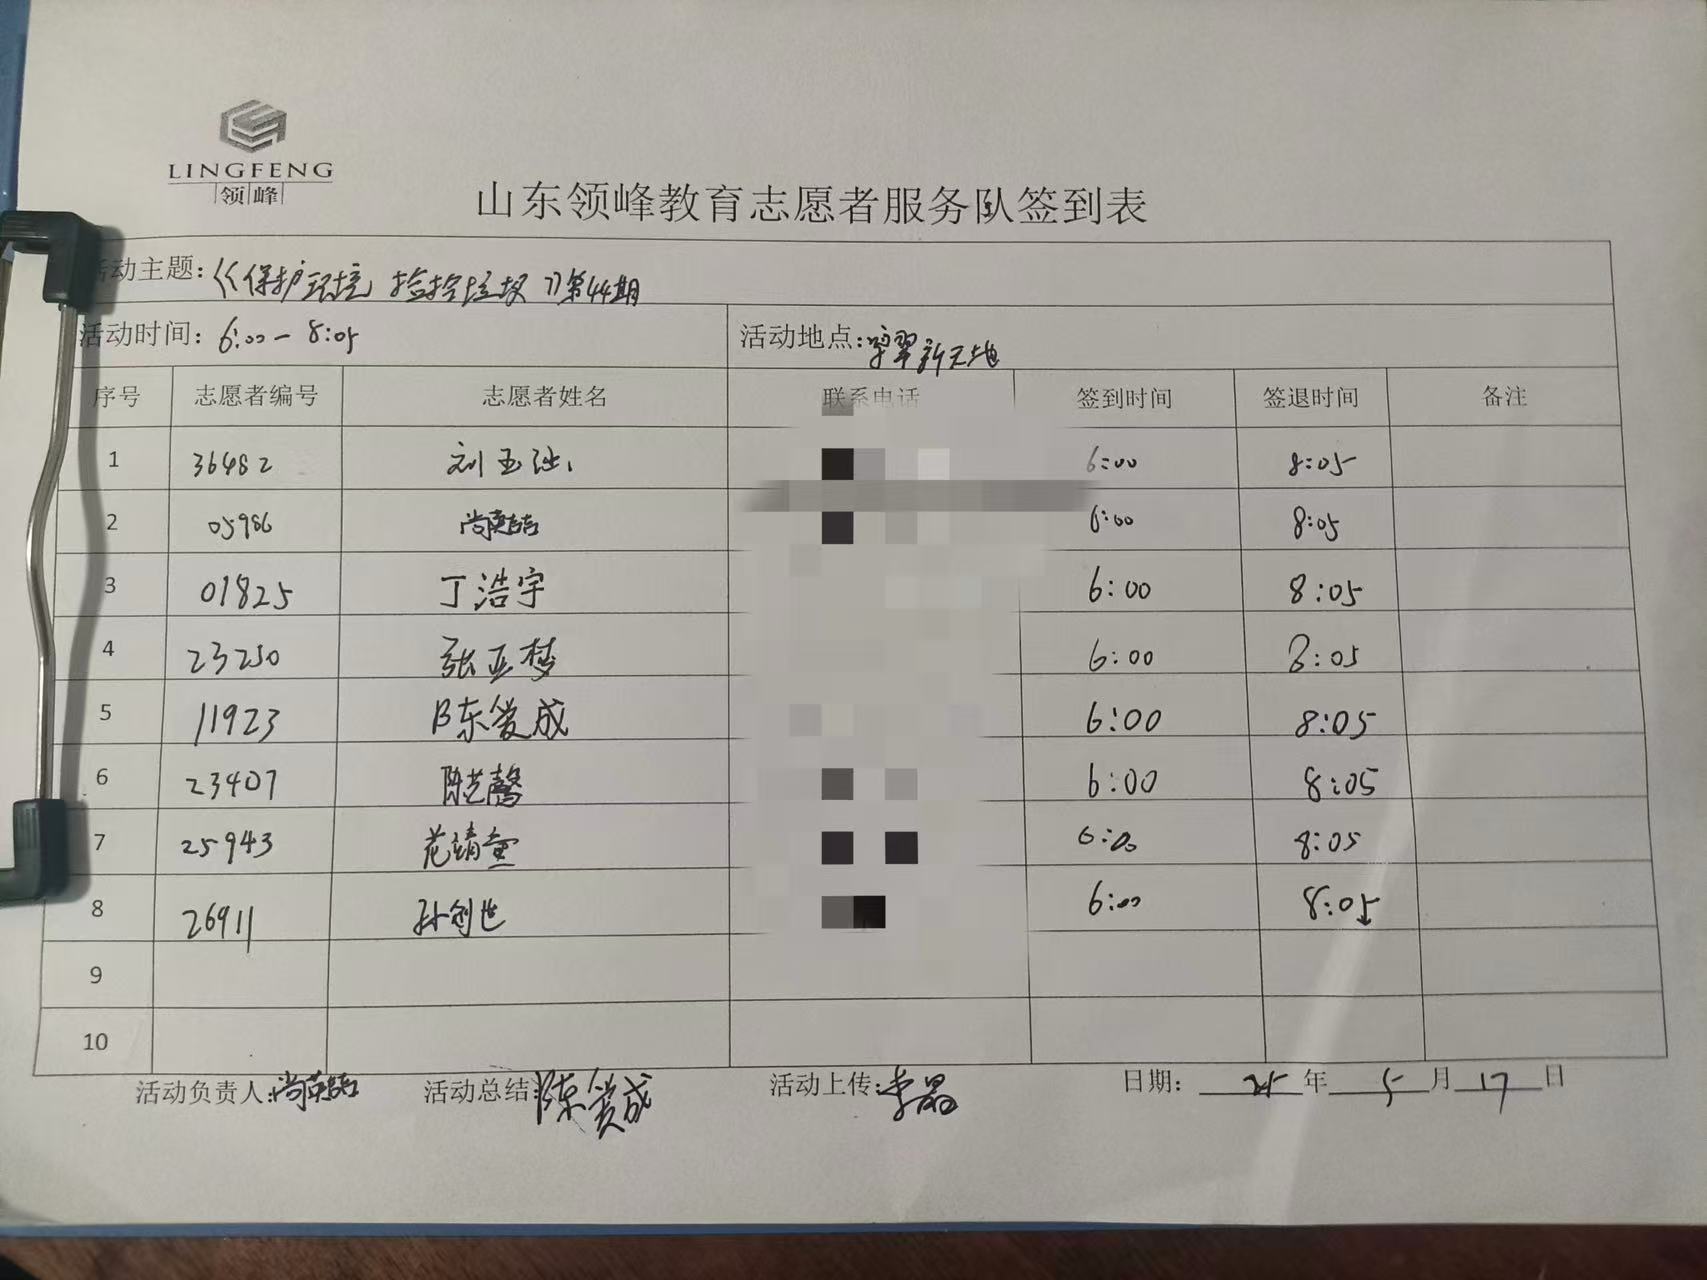 LINGFENG
领峰
山东领峰教育志愿者服务队签到表
活动主题:《保护环境 捡拾垃圾》第44期
活动时间: 6:00-8:05 活动地点: 新天地
序号 志愿者编号 志愿者姓名 联系电话 签到时间 签退时间 备注
1 36482 刘玉 6:00 8:05
2 05986 尚英喆 6:00 8:05
3 01825 丁浩宇 6:00 8:05
4 23250 张亚梦 6:00 8:05
5 11923 陈爱成 6:00 8:05
6 23407 陈芝馨 6:00 8:05
7 25943 范靖童 6:00 8:05
8 26911 孙创世 6:00 8:05
9
10
活动负责人:尚英喆 活动总结:陈爱成 活动上传:李晶 日期: 25年5月17日